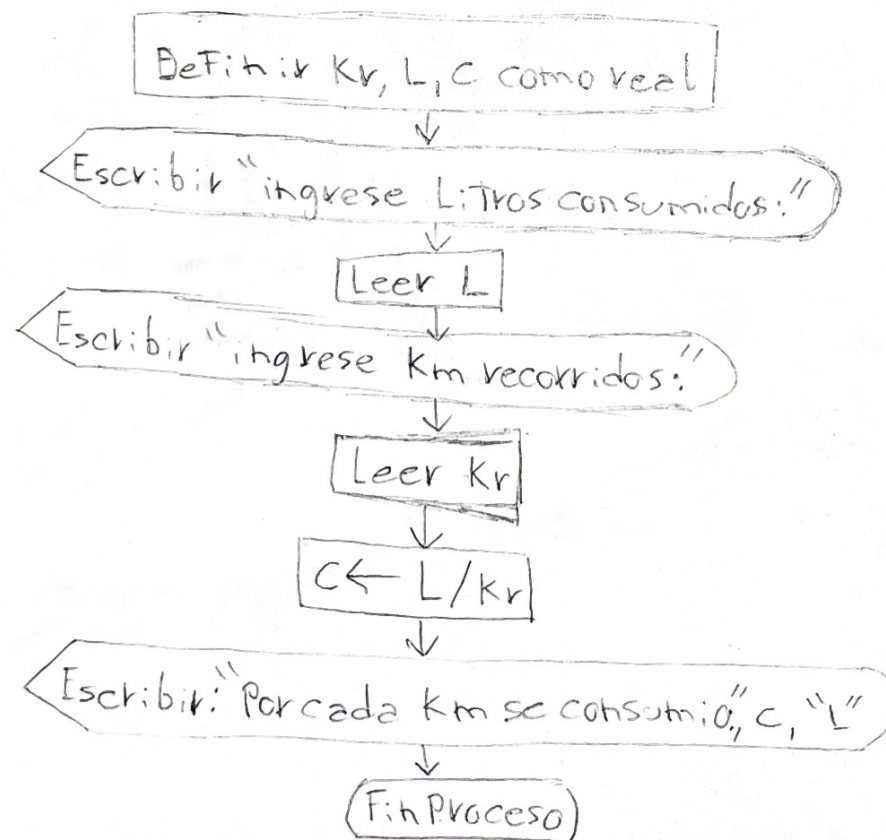 Definir Kr, L, C como real
Escribir "ingrese Litros consumidos:"
Leer L
Escribir "ingrese Km recorridos:"
Leer Kr
C ← L/Kr
Escribir: "Por cada Km se consumió", C, "L"
FinProceso